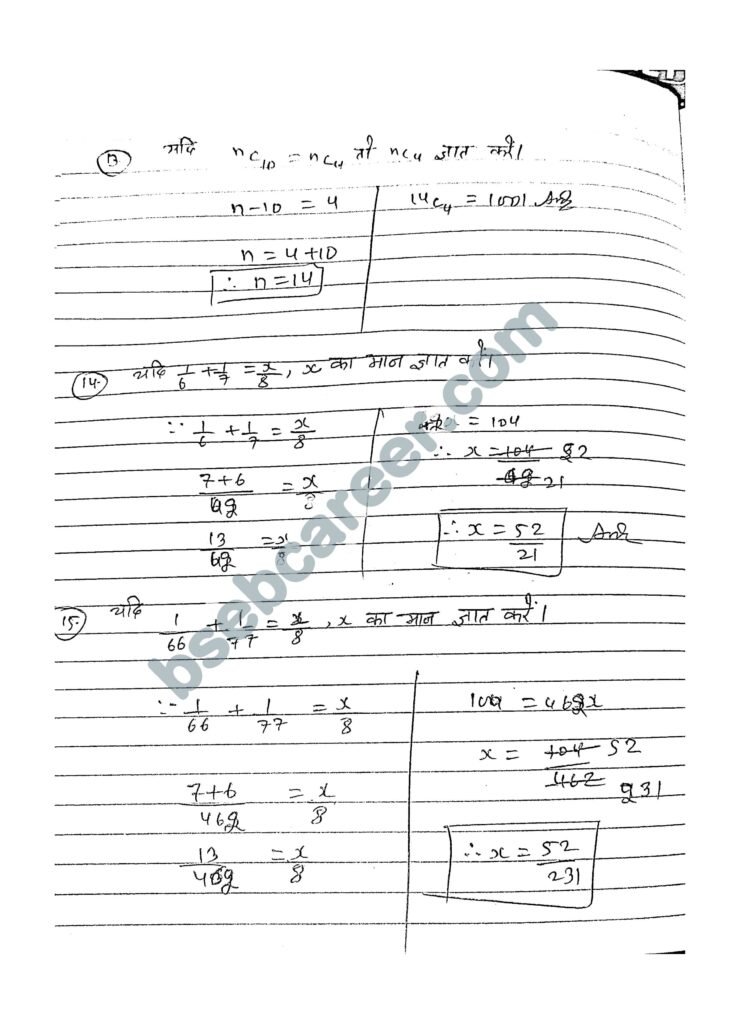 13 यदि nC10 = nC4 तो nC4 ज्ञात करें।
n-10 = 4
n = 4+10
∴ n=14
14C4 = 1001 Ans
14. यदि 1/6 + 1/7 = x/8, x का मान ज्ञात करें।
∵ 1/6 + 1/7 = x/8
7+6/42 = x/8
13/42 = x/8
= 104
∴ x = 104/42 52 21
∴ x = 52/21 Ans
15. यदि 1/66 + 1/77 = x/8, x का मान ज्ञात करें।
∵ 1/66 + 1/77 = x/8
7+6/462 = x/8
13/462 = x/8
104 = 462x
x = 104/462 52 231
∴ x = 52/231
bsebcareer.com